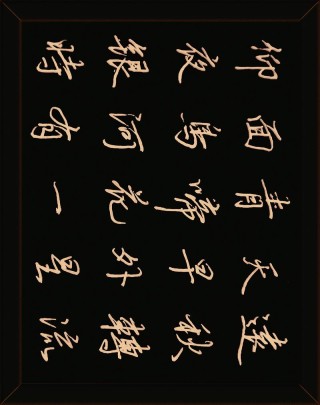 仰面青天遠
夜鳥啼早秋
銀河花外轉
時有一星流